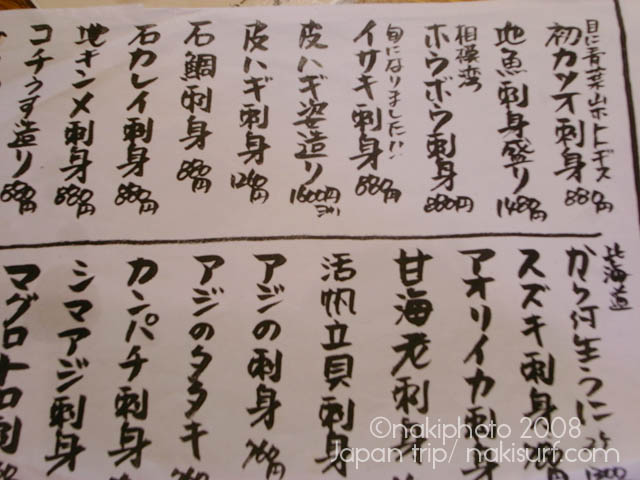 目に青葉山ホトトギス
初カツオ刺身 880円
地魚刺身盛り 1480円
相模湾
ホウボウ刺身 880円
旬になりました!!
イサキ刺身 880円
皮ハギ姿造り 1600円ヨリ
皮ハギ刺身 1200円
石鯛刺身 880円
石カレイ刺身 880円
地キンメ刺身 880円
コチうす造り 880円
北海道
から付生うに 1300
スズキ刺身
アオリイカ刺身
甘海老刺
活帆立貝刺身
アジの刺身 760円
アジのタタキ 760
カンパチ刺身
シマアジ刺身
マグロトロ刺
©nakiphoto 2008
Japan trip/ nakisurf.com